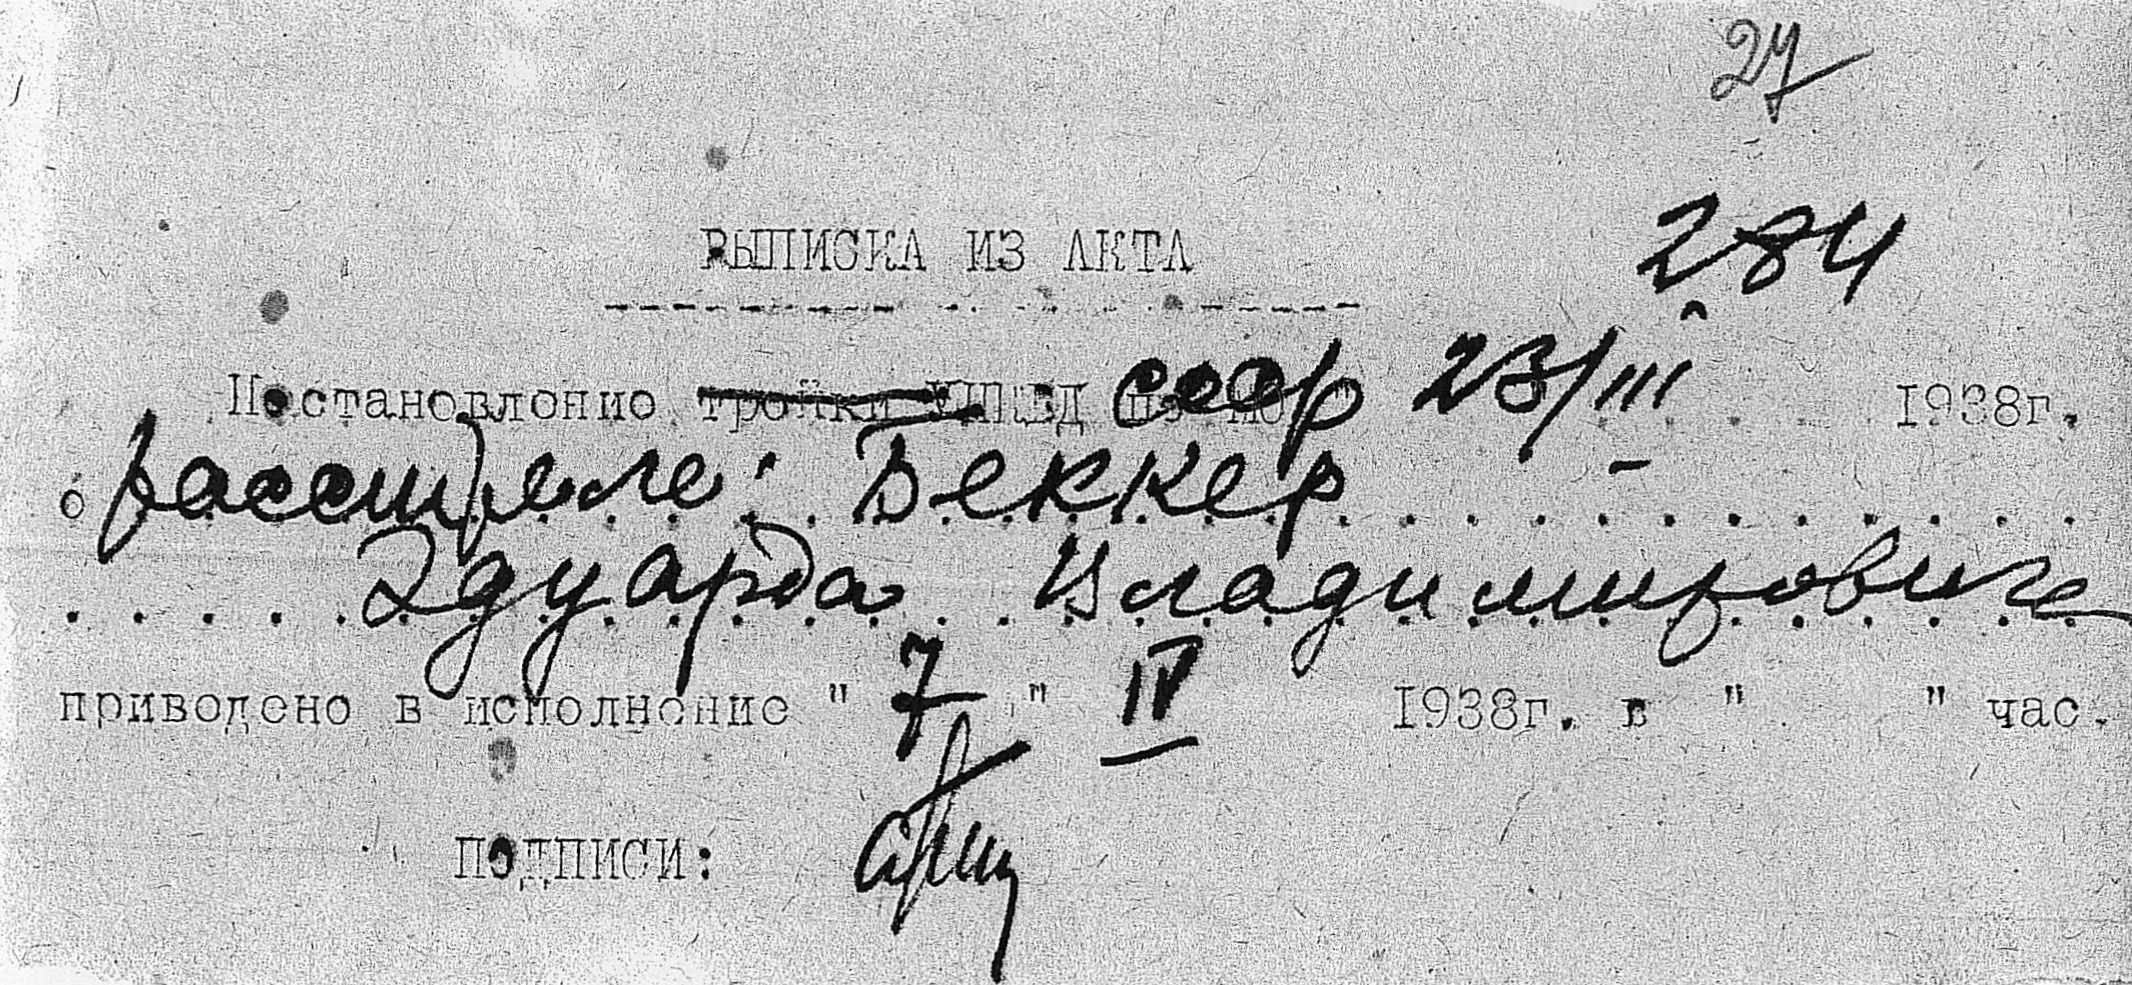 27
ВЫПИСКА ИЗ АКТА
284
Постановление тройки УНКВД по НСО СССР 23/III 1938г.
о расстреле: Беккер
Эдуарда Владимировича
приведено в исполнение " 7 " IV 1938г. в " " час.
ПОДПИСИ: